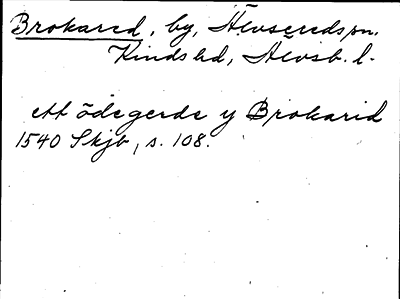 Brokared, by, Älvsereds sn.
Kinds hd, Älvsb. l.
ett ödegerde y Brokarid
1540 Skjb, s. 108.